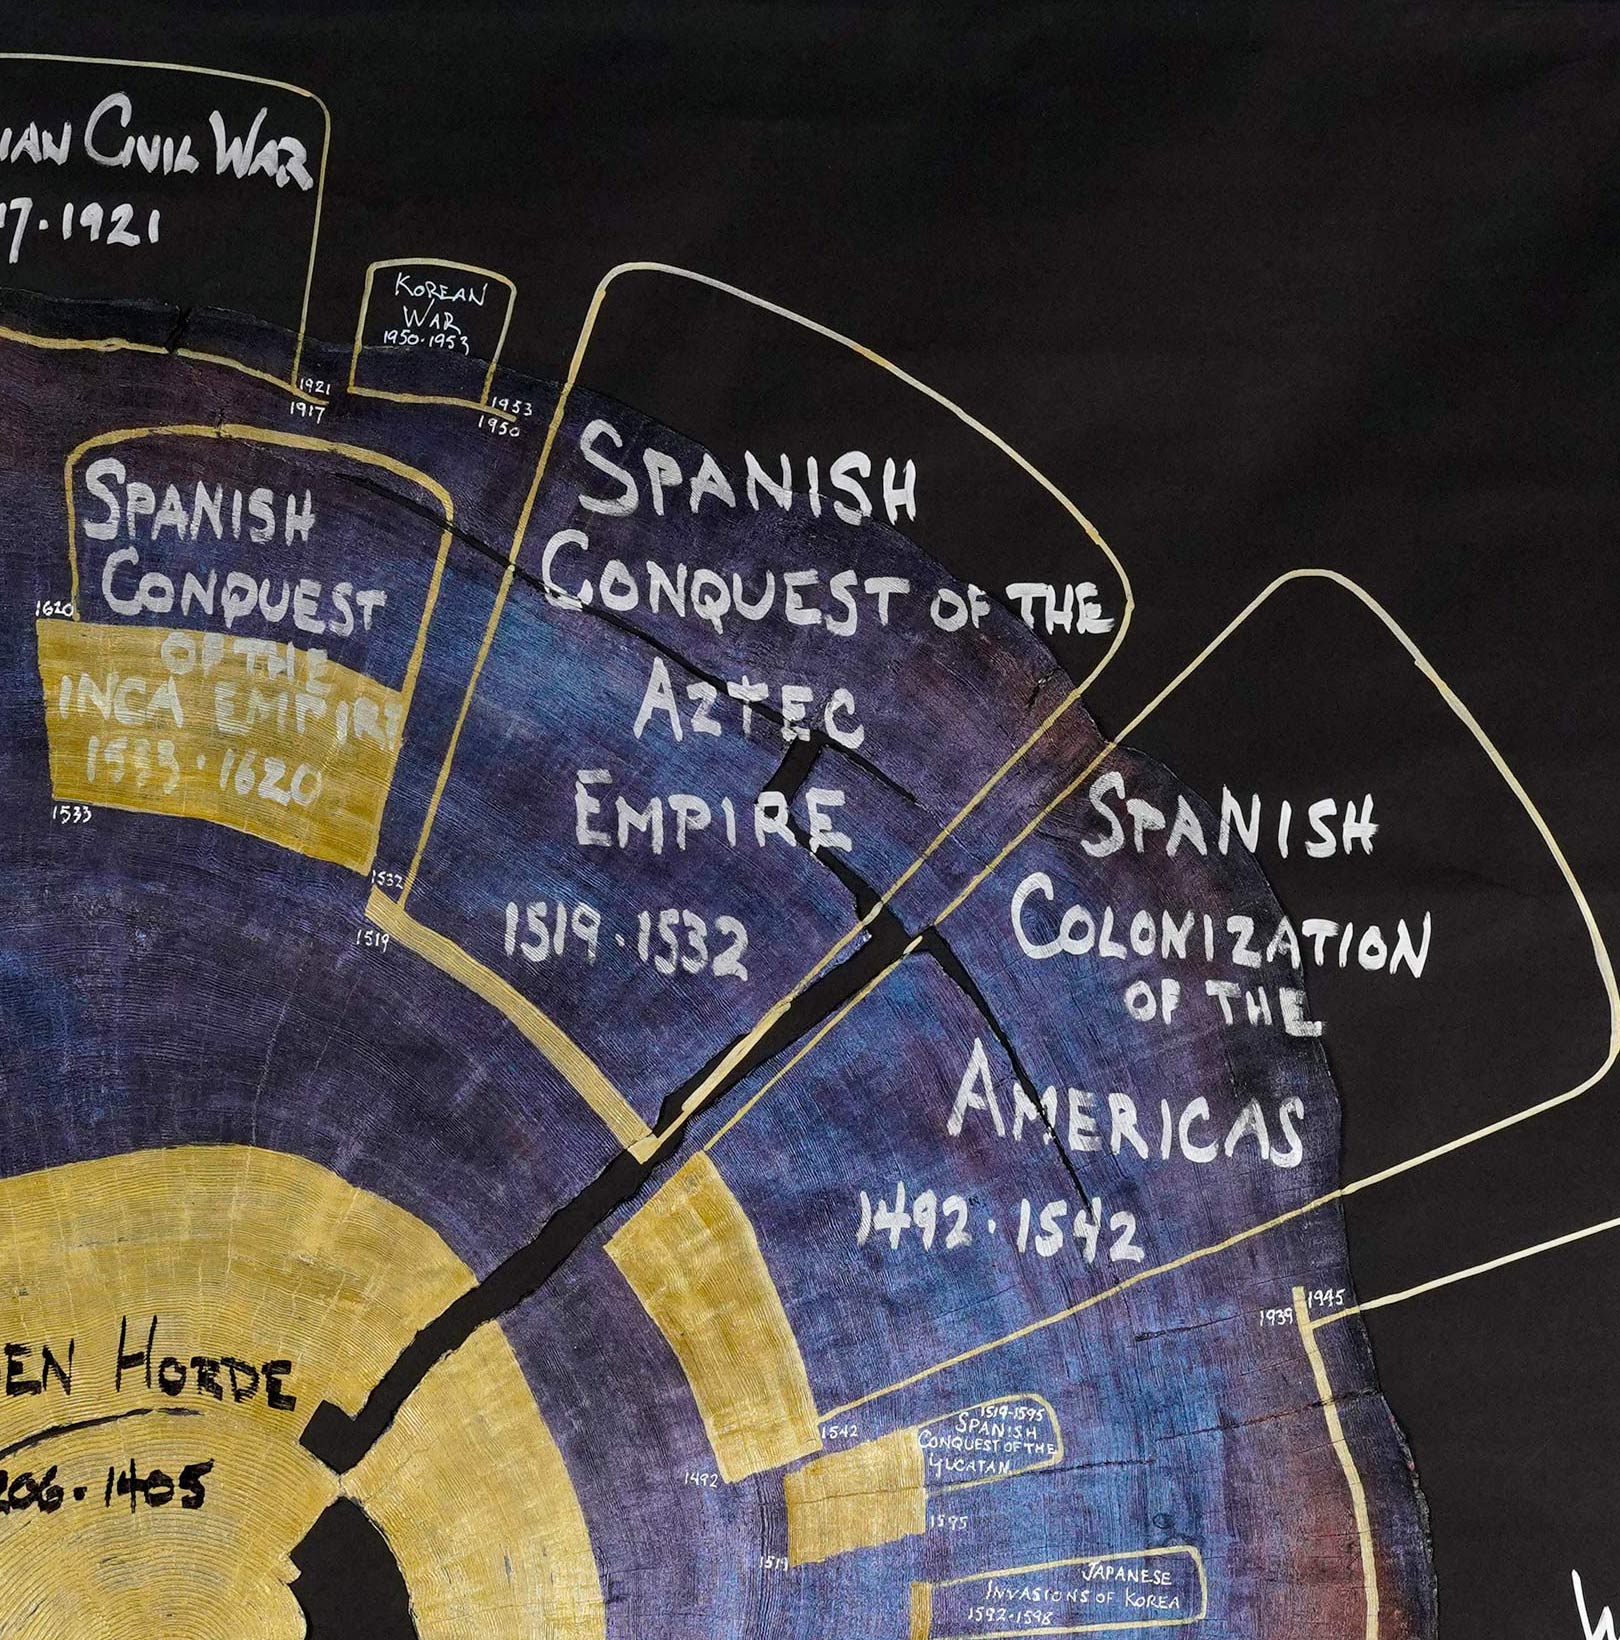 IAN CIVIL WAR
17·1921
KOREAN
WAR
1950·1953
1921
1917
1953
1950
SPANISH
CONQUEST
OF THE
INCA EMPIRE
1533·1620
1620
1533
SPANISH
CONQUEST OF THE
AZTEC
EMPIRE
1519·1532
1532
1519
SPANISH
COLONIZATION
OF THE
AMERICAS
1492·1542
1542
1492
1945
1939
1519-1595
SPANISH
CONQUEST OF THE
YUCATAN
1595
1519
JAPANESE
INVASIONS OF KOREA
1592-1598
EN HORDE
206·1405
W